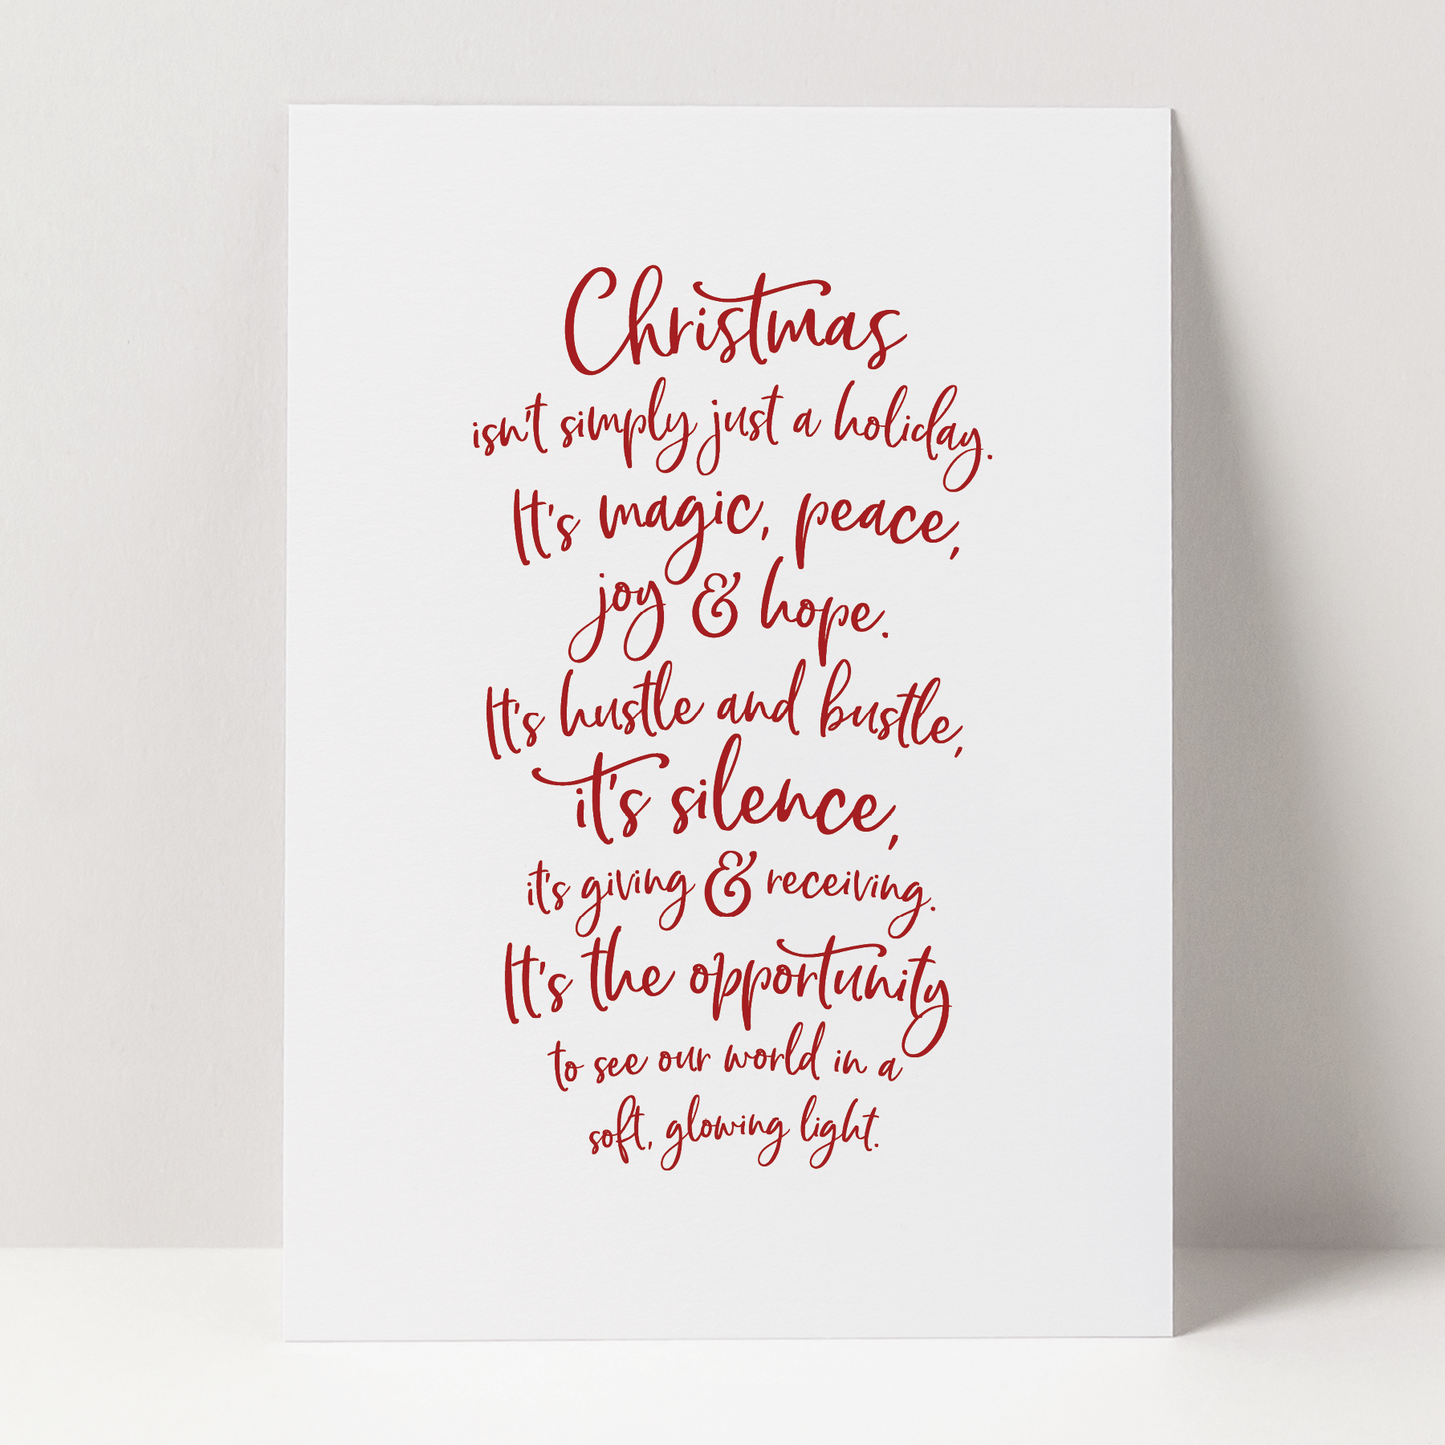 Christmas
isn't simply just a holiday.
It's magic, peace,
joy & hope.
It's hustle and bustle,
it's silence,
it's giving & receiving.
It's the opportunity
to see our world in a
soft, glowing light.